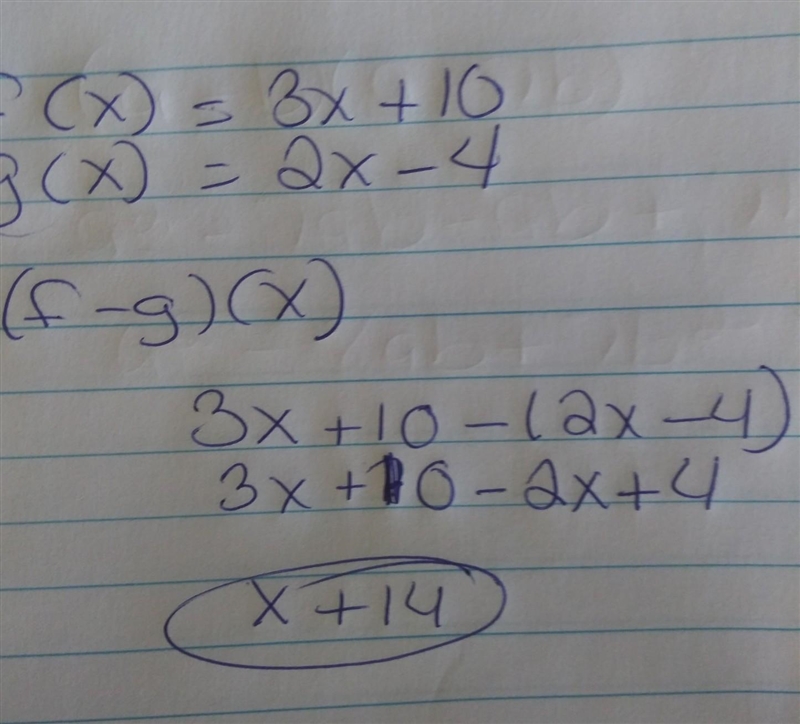 f(x) = 3x + 10
g(x) = 2x - 4
(f - g)(x)
3x + 10 - (2x - 4)
3x + 10 - 2x + 4
x + 14